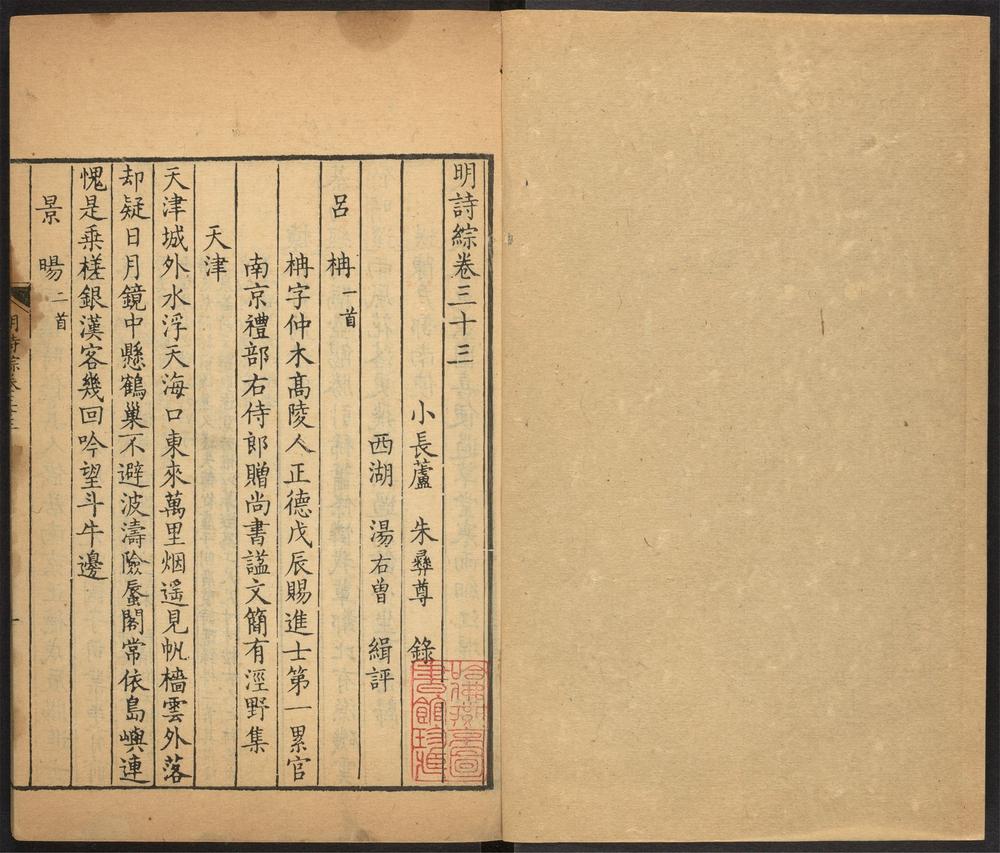 明詩綜卷三十三
小長蘆 朱彝尊 錄
西湖 湯右曾 緝評
呂 柟 一首
柟字仲木髙陵人正德戊辰賜進士第一累官
南京禮部右侍郎贈尚書諡文簡有涇野集
天津
天津城外水浮天海口東來萬里烟遥見帆檣雲外落
却疑日月鏡中懸鶴巢不避波濤險蜃閣常依島嶼連
愧是乗槎銀漢客幾回吟望斗牛邊
景 暘 二首